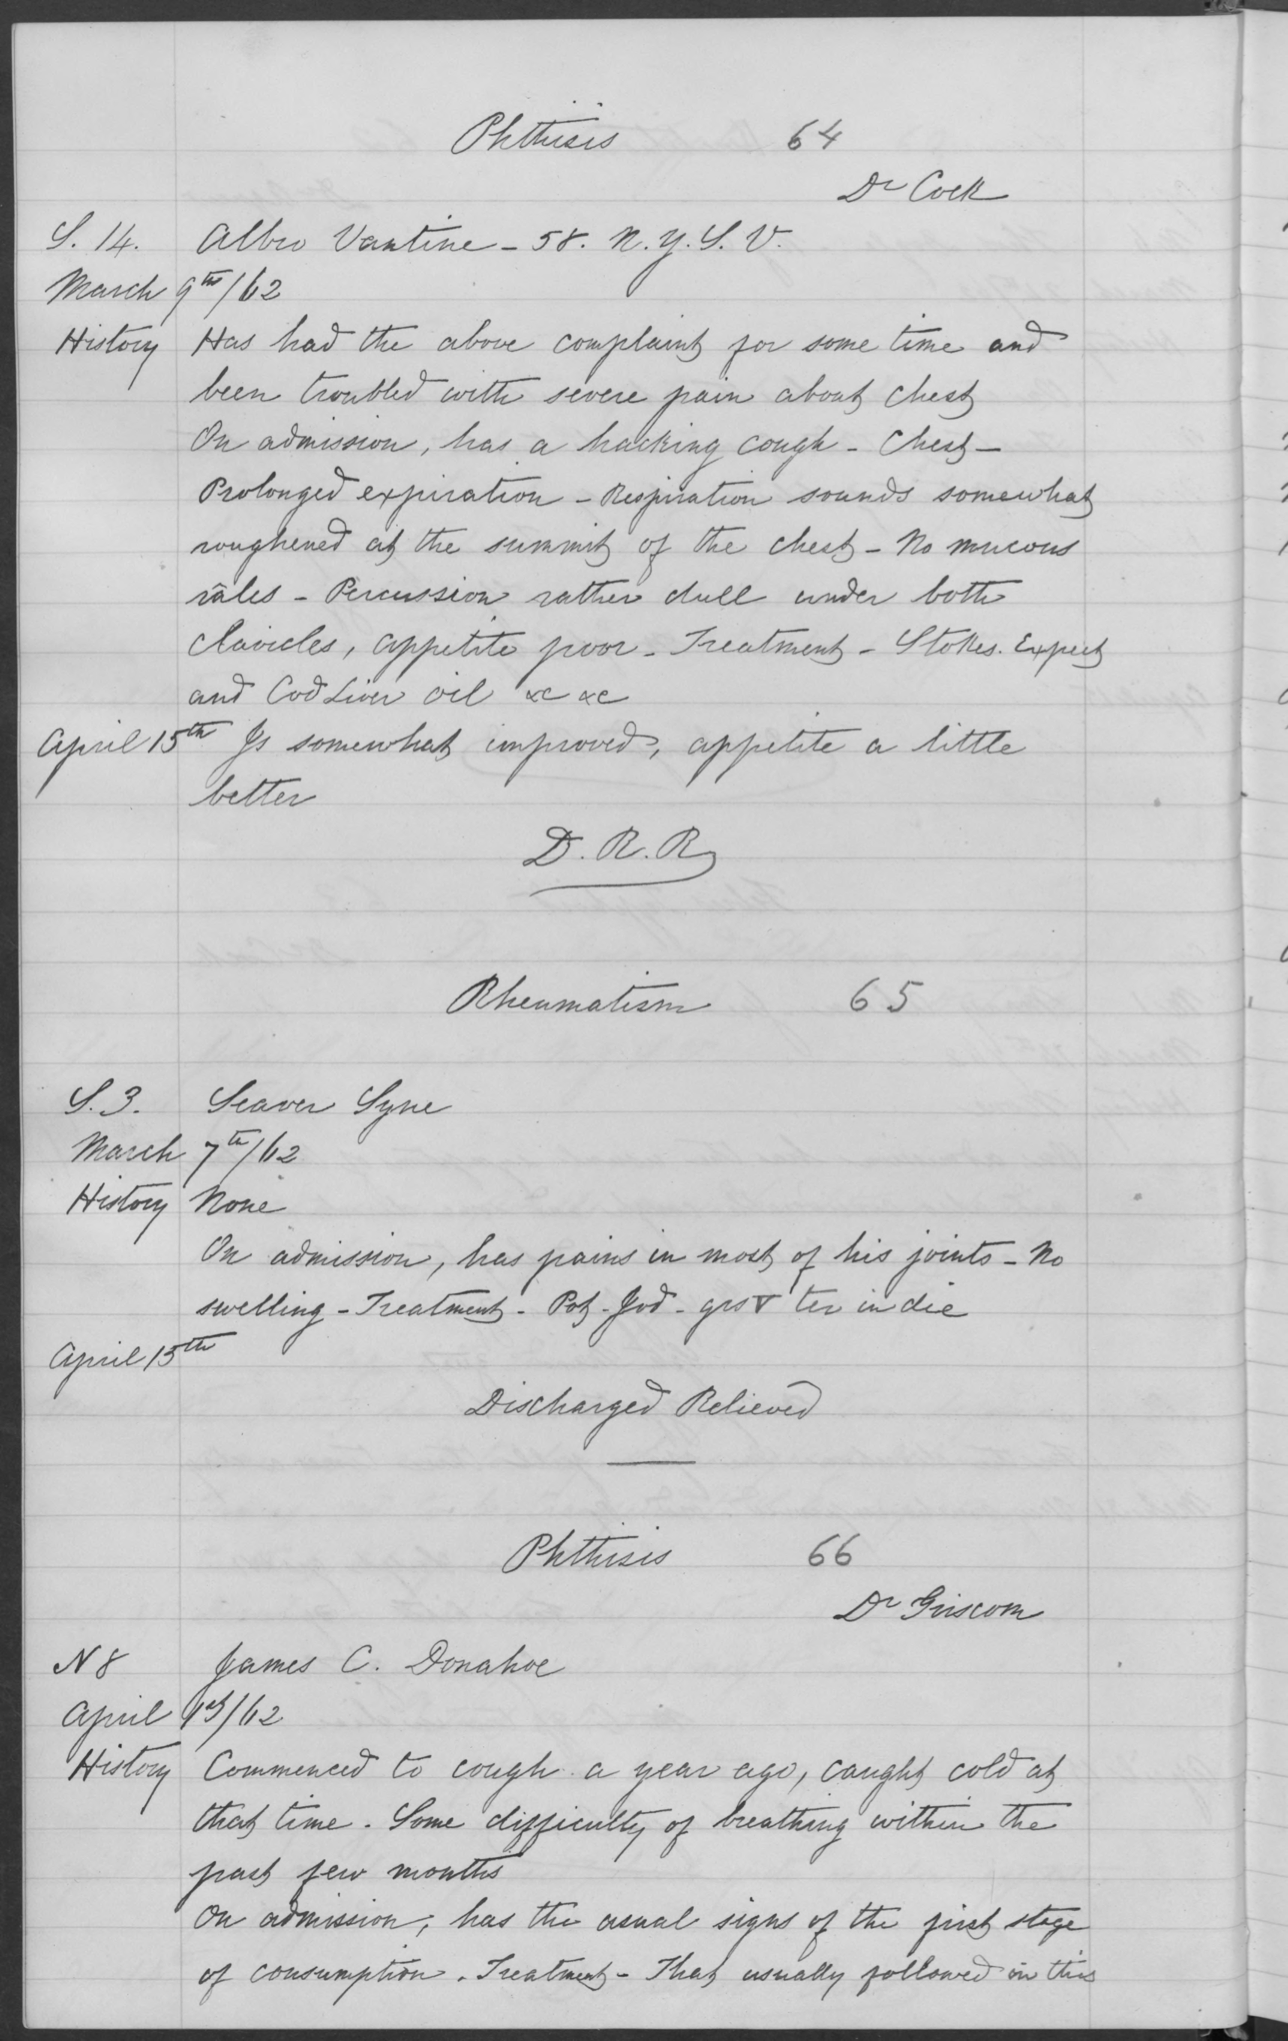 Phthisis 64
Dr Cock
S. 14. Albro Vantine - 58. N. Y. S. V.
March 9th/62
History Has had the above complaint for some time and
been troubled with severe pain about chest
On admission, has a hacking cough - Chest -
Prolonged expiration - Respiration sounds somewhat
roughened at the summit of the chest - No mucous
râles - Percussion rather dull under both
clavicles, appetite poor - Treatment - Stokes. Expect
and Cod Liver oil &c &c
April 15th Is somewhat improved, appetite a little
better
D. R. R
Rheumatism 65
S. 3. Seaver Syne
March 7th/62
History None
On admission, has pains in most of his joints - No
swelling - Treatment - Pot - Iod - grs V ter in die
April 15th
Discharged Relieved
Phthisis 66
Dr Griscom
N 8 James C. Donahoe
April 1st/62
History Commenced to cough a year ago, caught cold at
that time. Some difficulty of breathing within the
past few months
On admission, has the usual signs of the first stage
of consumption. Treatment - That usually followed in this